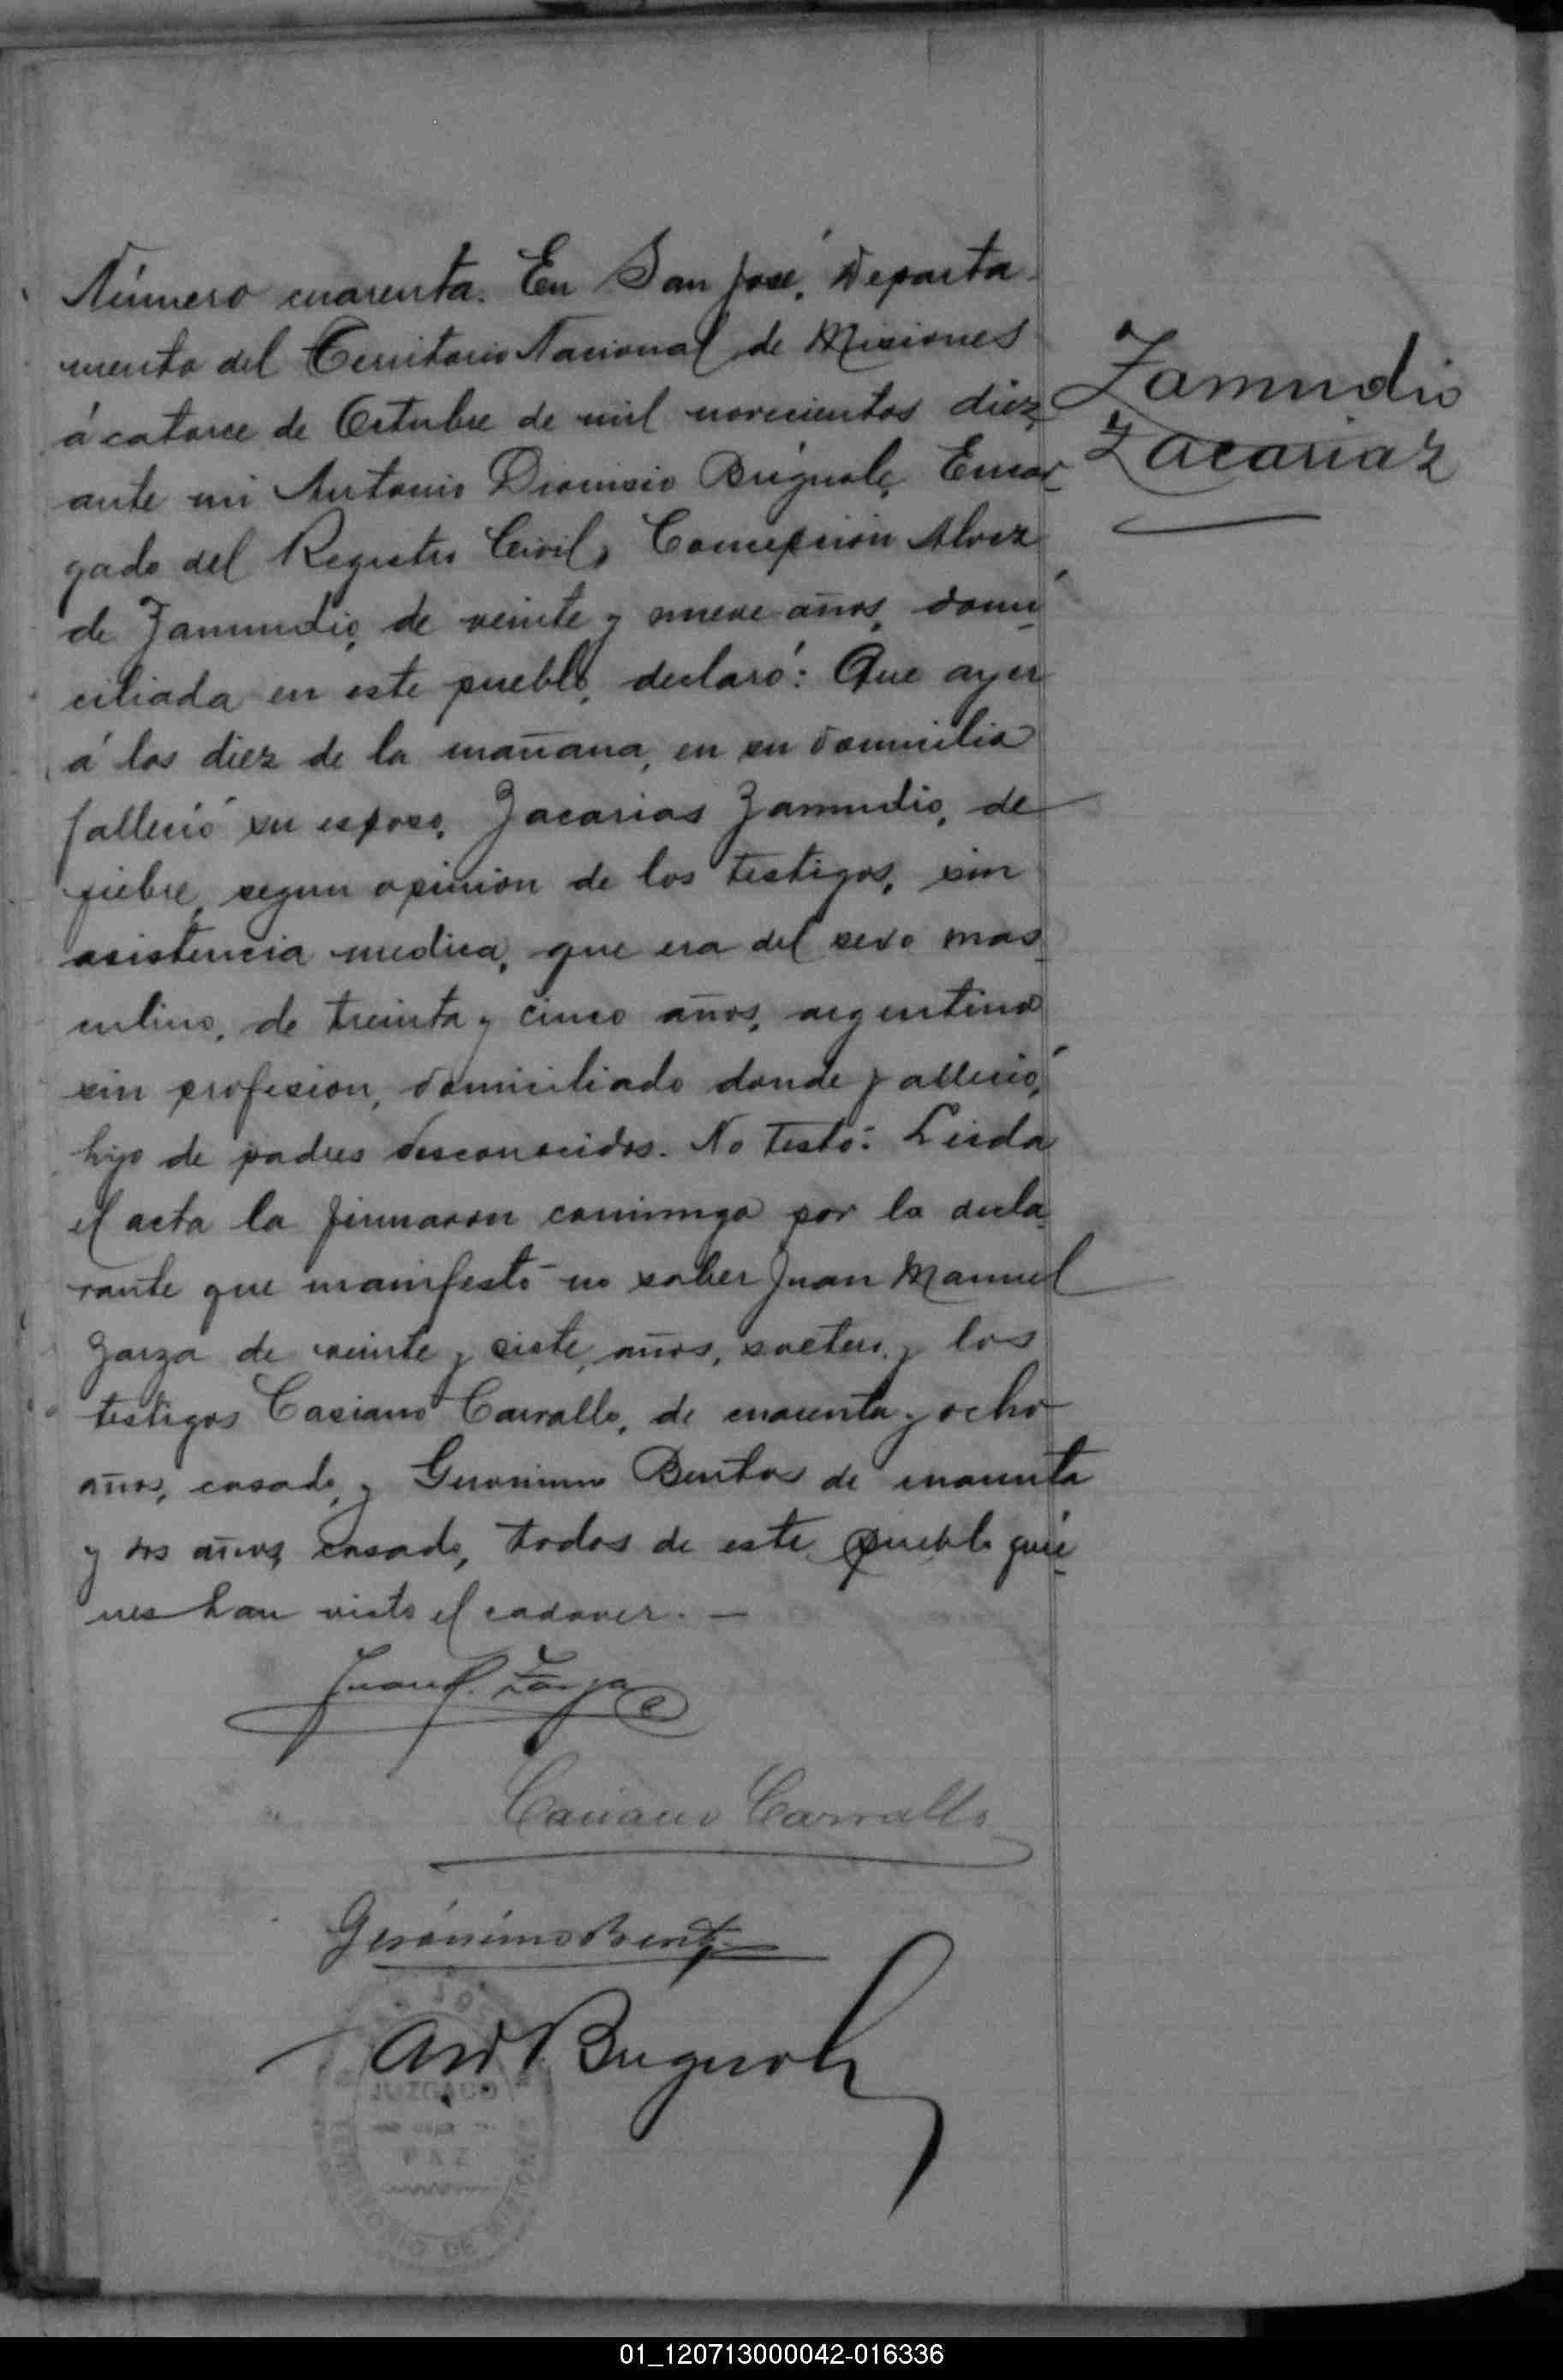 Número cuarenta. En San José, Departa
mento del Territorio Nacional de Misiones
á catorce de Octubre de mil novecientos diez,
ante mi Antonio Dionisio Brignole, Encar-
gado del Registro Civil, Concepción Alvez
de Zamudio, de veinte y nueve años, domi-
ciliada en este pueblo, declaró: Que ayer
á las diez de la mañana, en su domicilio
falleció su esposo, Zacarias Zamudio, de
fiebre, segun opinion de los testigos, sin
asistencia medica, que era del sexo mas-
culino, de treinta y cinco años, argentino
sin profesion, domiciliado donde falleció,
hijo de padres desconocidos. No testó. Leida
el acta la firmaron conmigo por la decla-
rante que manifestó no saber Juan Manuel
Zarza de veinte y siete, años, soltero, y los
testigos Casiano Carvallo, de cuarenta y ocho
años, casado, y Geronimo Bentos de cuarenta
y dos años, casado, todos de este pueblo quie-
nes han visto el cadaver. —
Zamudio
Zacariaz
Juan M. Zarza
Casiano Carvallo
Gerónimo Bentos
Ant D Brignole
JUZGADO
DE
PAZ
01_120713000042-016336